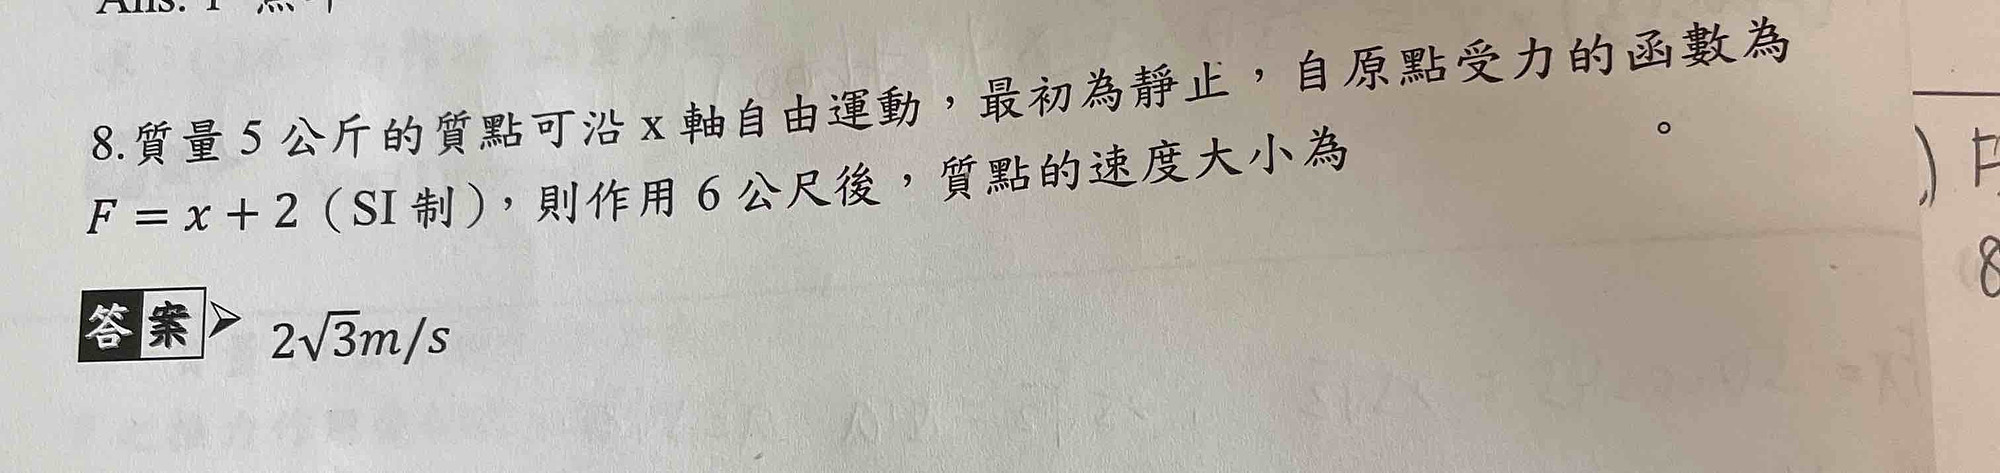 Ans: 1
8.質量 5 公斤的質點可沿 x 軸自由運動，最初為靜止，自原點受力的函數為
F = x + 2（SI 制），則作用 6 公尺後，質點的速度大小為 。
答案 2√3m/s
8